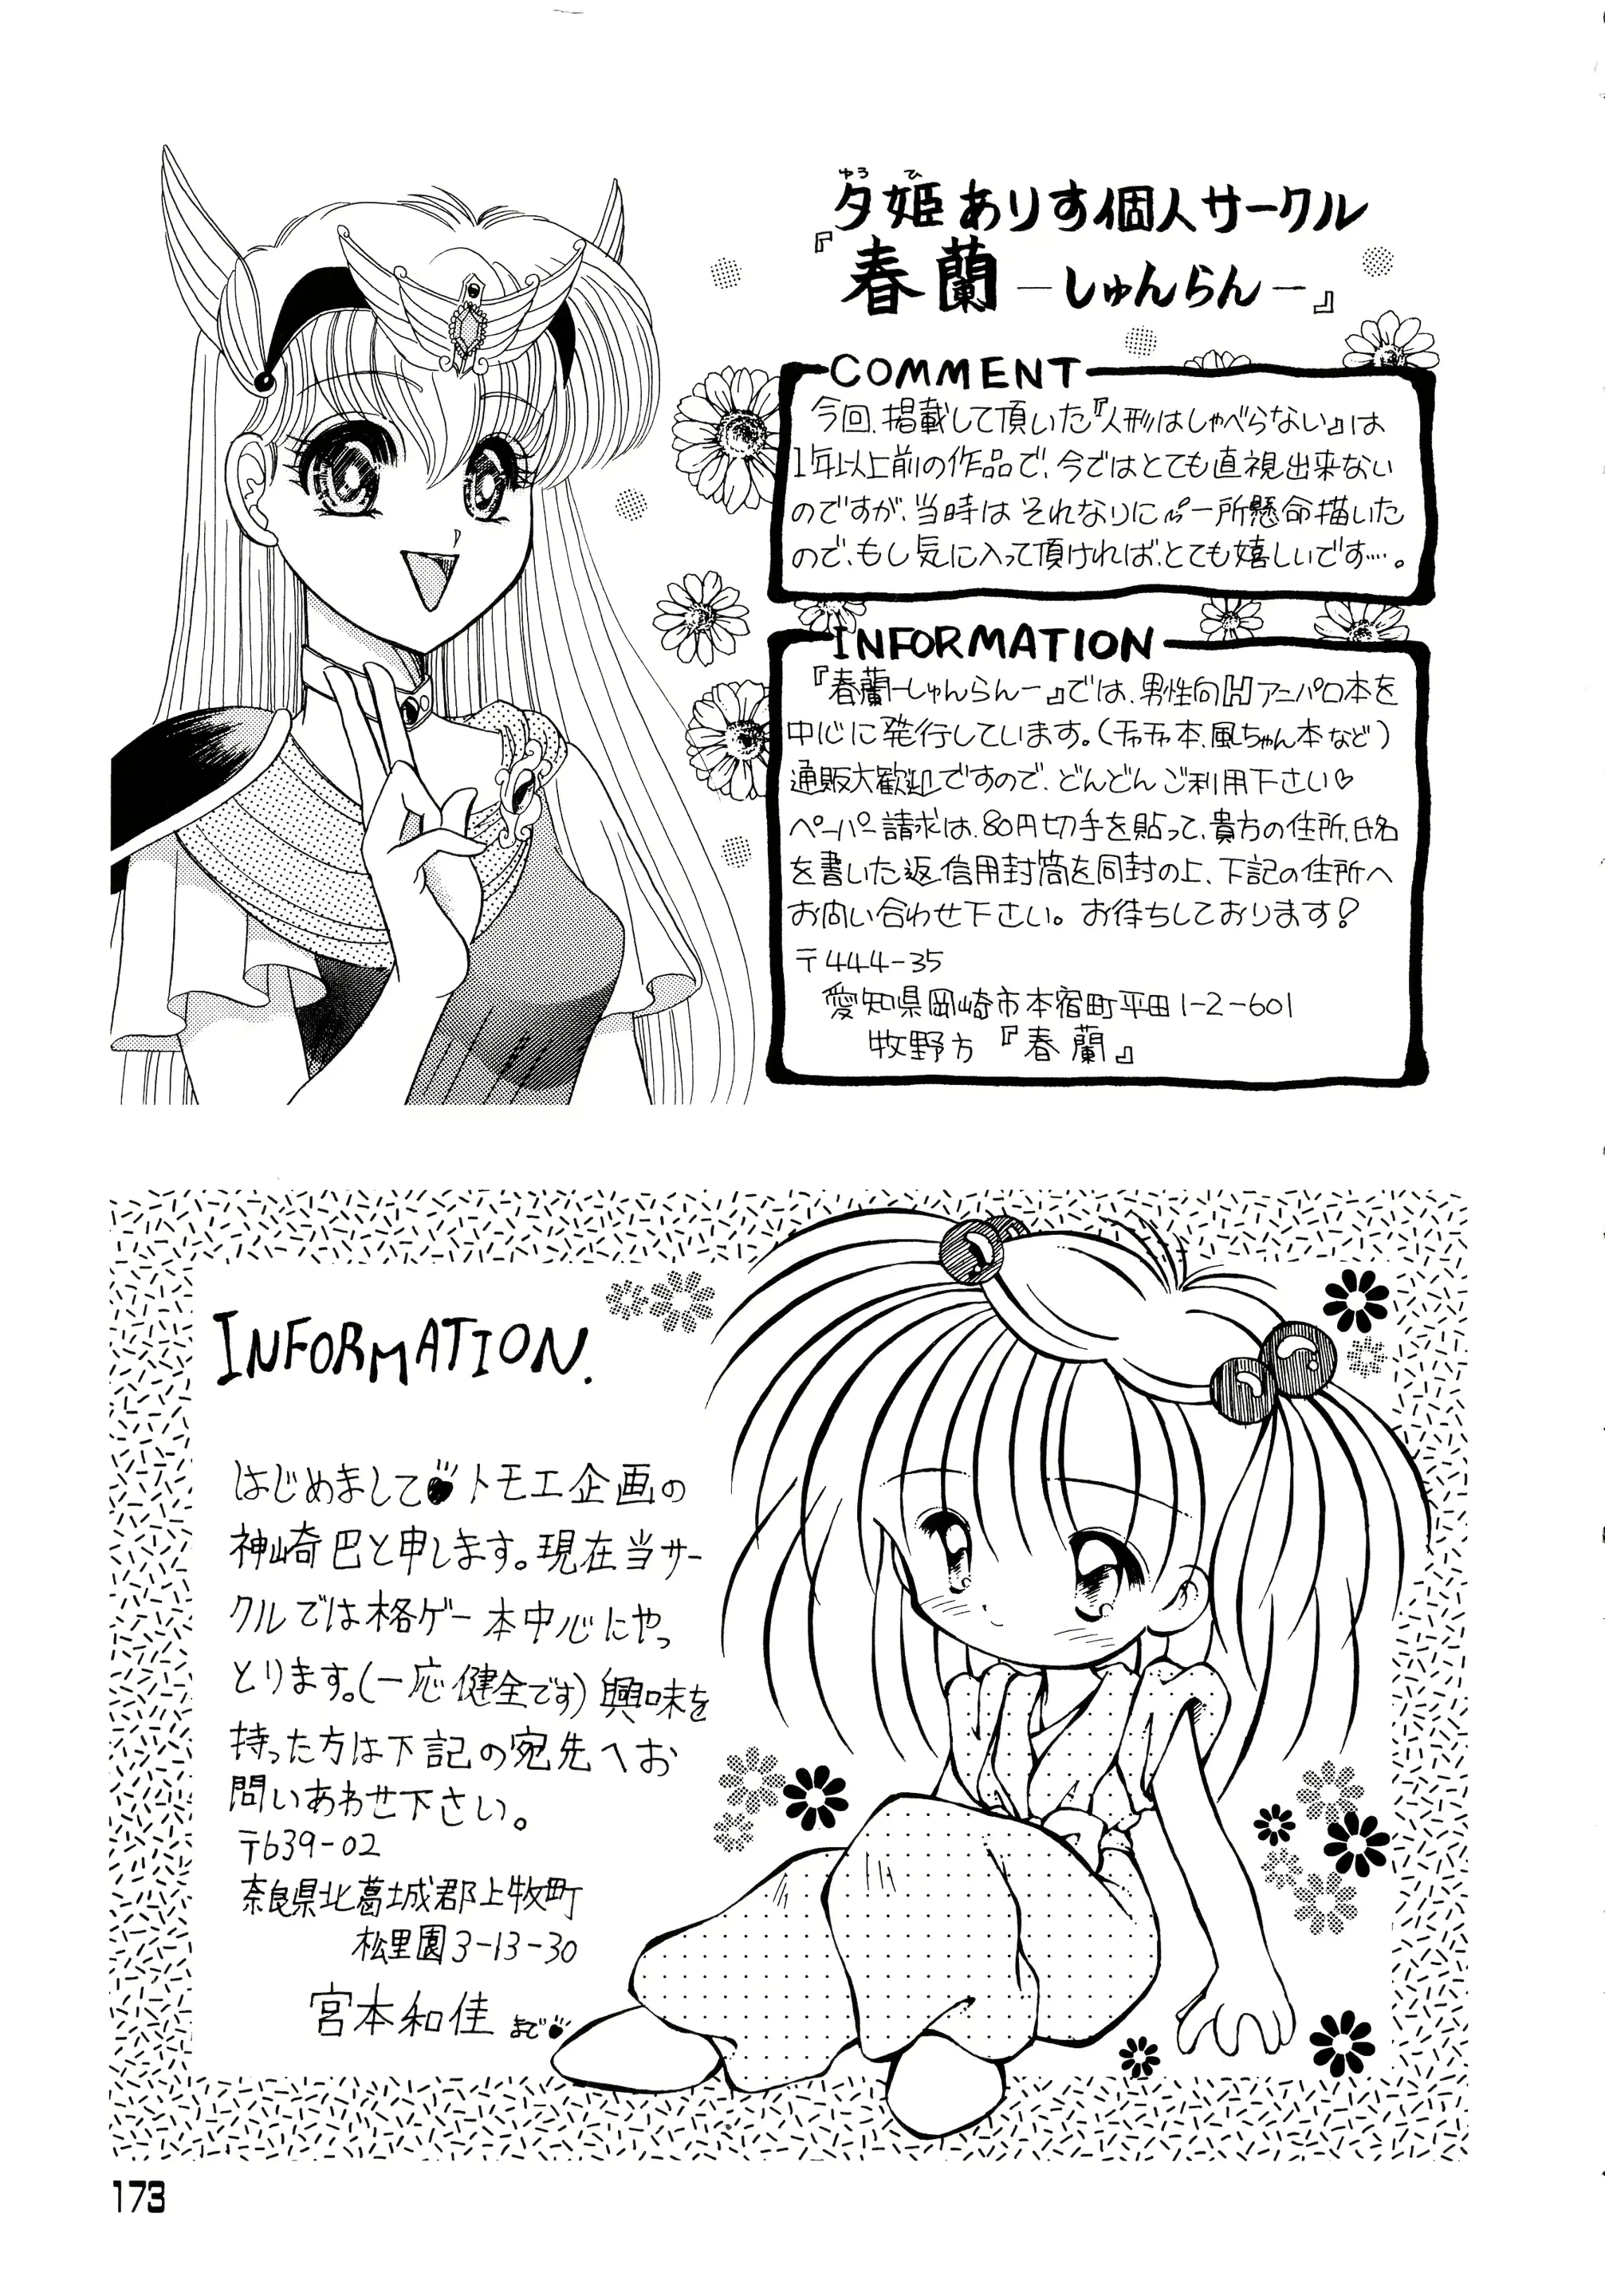 夕姫ありす個人サークル
ゆう ひ
『春蘭 ―しゅんらん―』
COMMENT
今回、掲載して頂いた『人形はしゃべらない』は
1年以上前の作品で、今ではとても直視出来ない
のですが、当時は それなりに 一所懸命描いた
ので、もし気に入って頂ければ、とても嬉しいです…。
INFORMATION
『春蘭―しゅんらん―』では、男性向Hアニパロ本を
中心に発行しています。(チャチャ本、風ちゃん本など)
通販大歓迎ですので、どんどんご利用下さい♡
ペーパー請求は、80円切手を貼って、貴方の住所、氏名
を書いた返信用封筒を同封の上、下記の住所へ
お問い合わせ下さい。お待ちしております!
〒444-35
愛知県岡崎市本宿町平田1-2-601
牧野方『春蘭』
INFORMATION.
はじめまして トモエ企画の
神崎巴と申します。現在当サー
クルでは格ゲー本中心にやっ
とります。(一応健全です)興味を
持った方は下記の宛先へお
問いあわせ下さい。
〒639-02
奈良県北葛城郡上牧町
松里園3-13-30
宮本和佳 まで
173